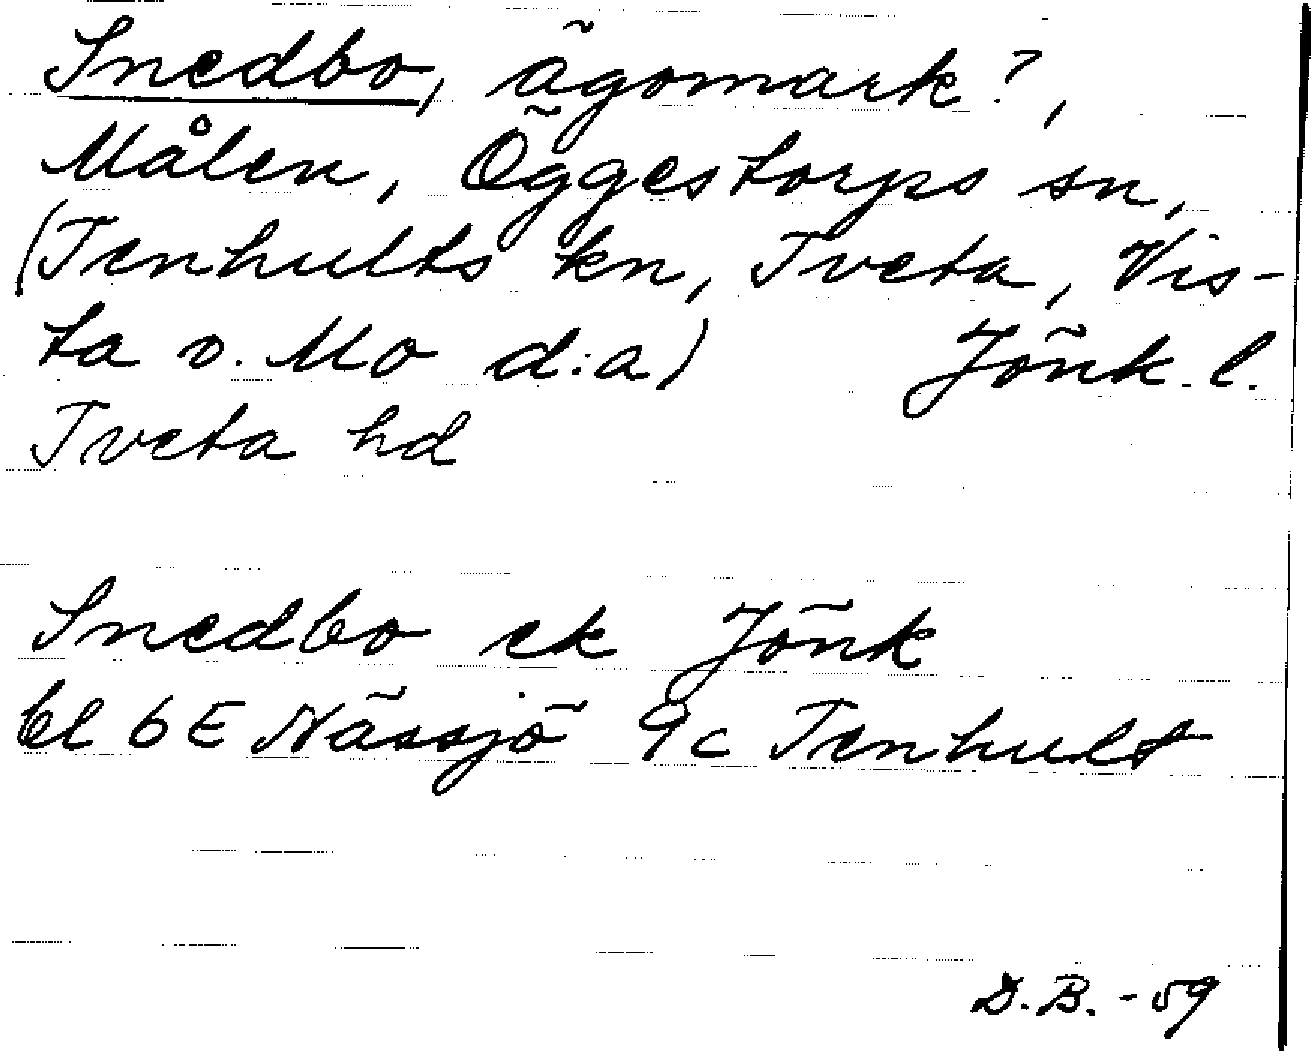 Snedbo, ägomark?,
Målen, Öggestorps sn,
(Tenhults kn, Tveta, Vis-
ta o. Mo d:a) Jönk. l.
Tveta hd
Snedbo ek Jönk
bl 6E Nässjö 9c Tenhult
D.B. -59